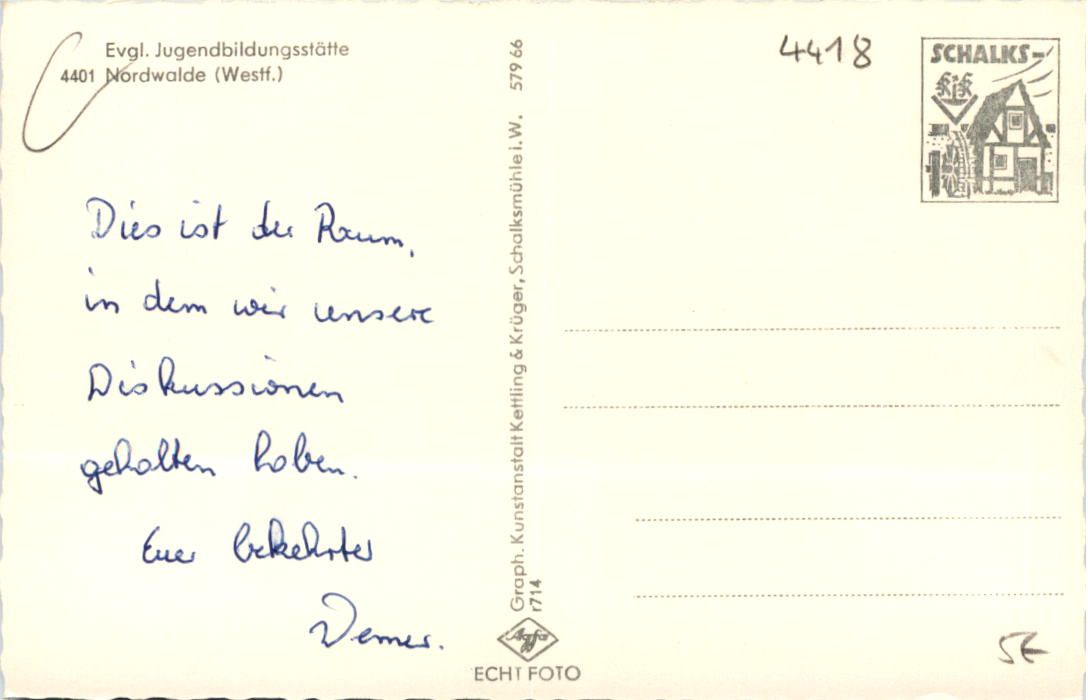 Evgl. Jugendbildungsstätte
4401 Nordwalde (Westf.)
Dies ist der Raum,
in dem wir unsere
Diskussionen
gehalten haben.
Euer bekehrter
Werner.
Graph. Kunstanstalt Kettling & Krüger, Schalksmühle i. W. 579 66
r714
Agfa
ECHT FOTO
4418
SCHALKS-
KiK
SE